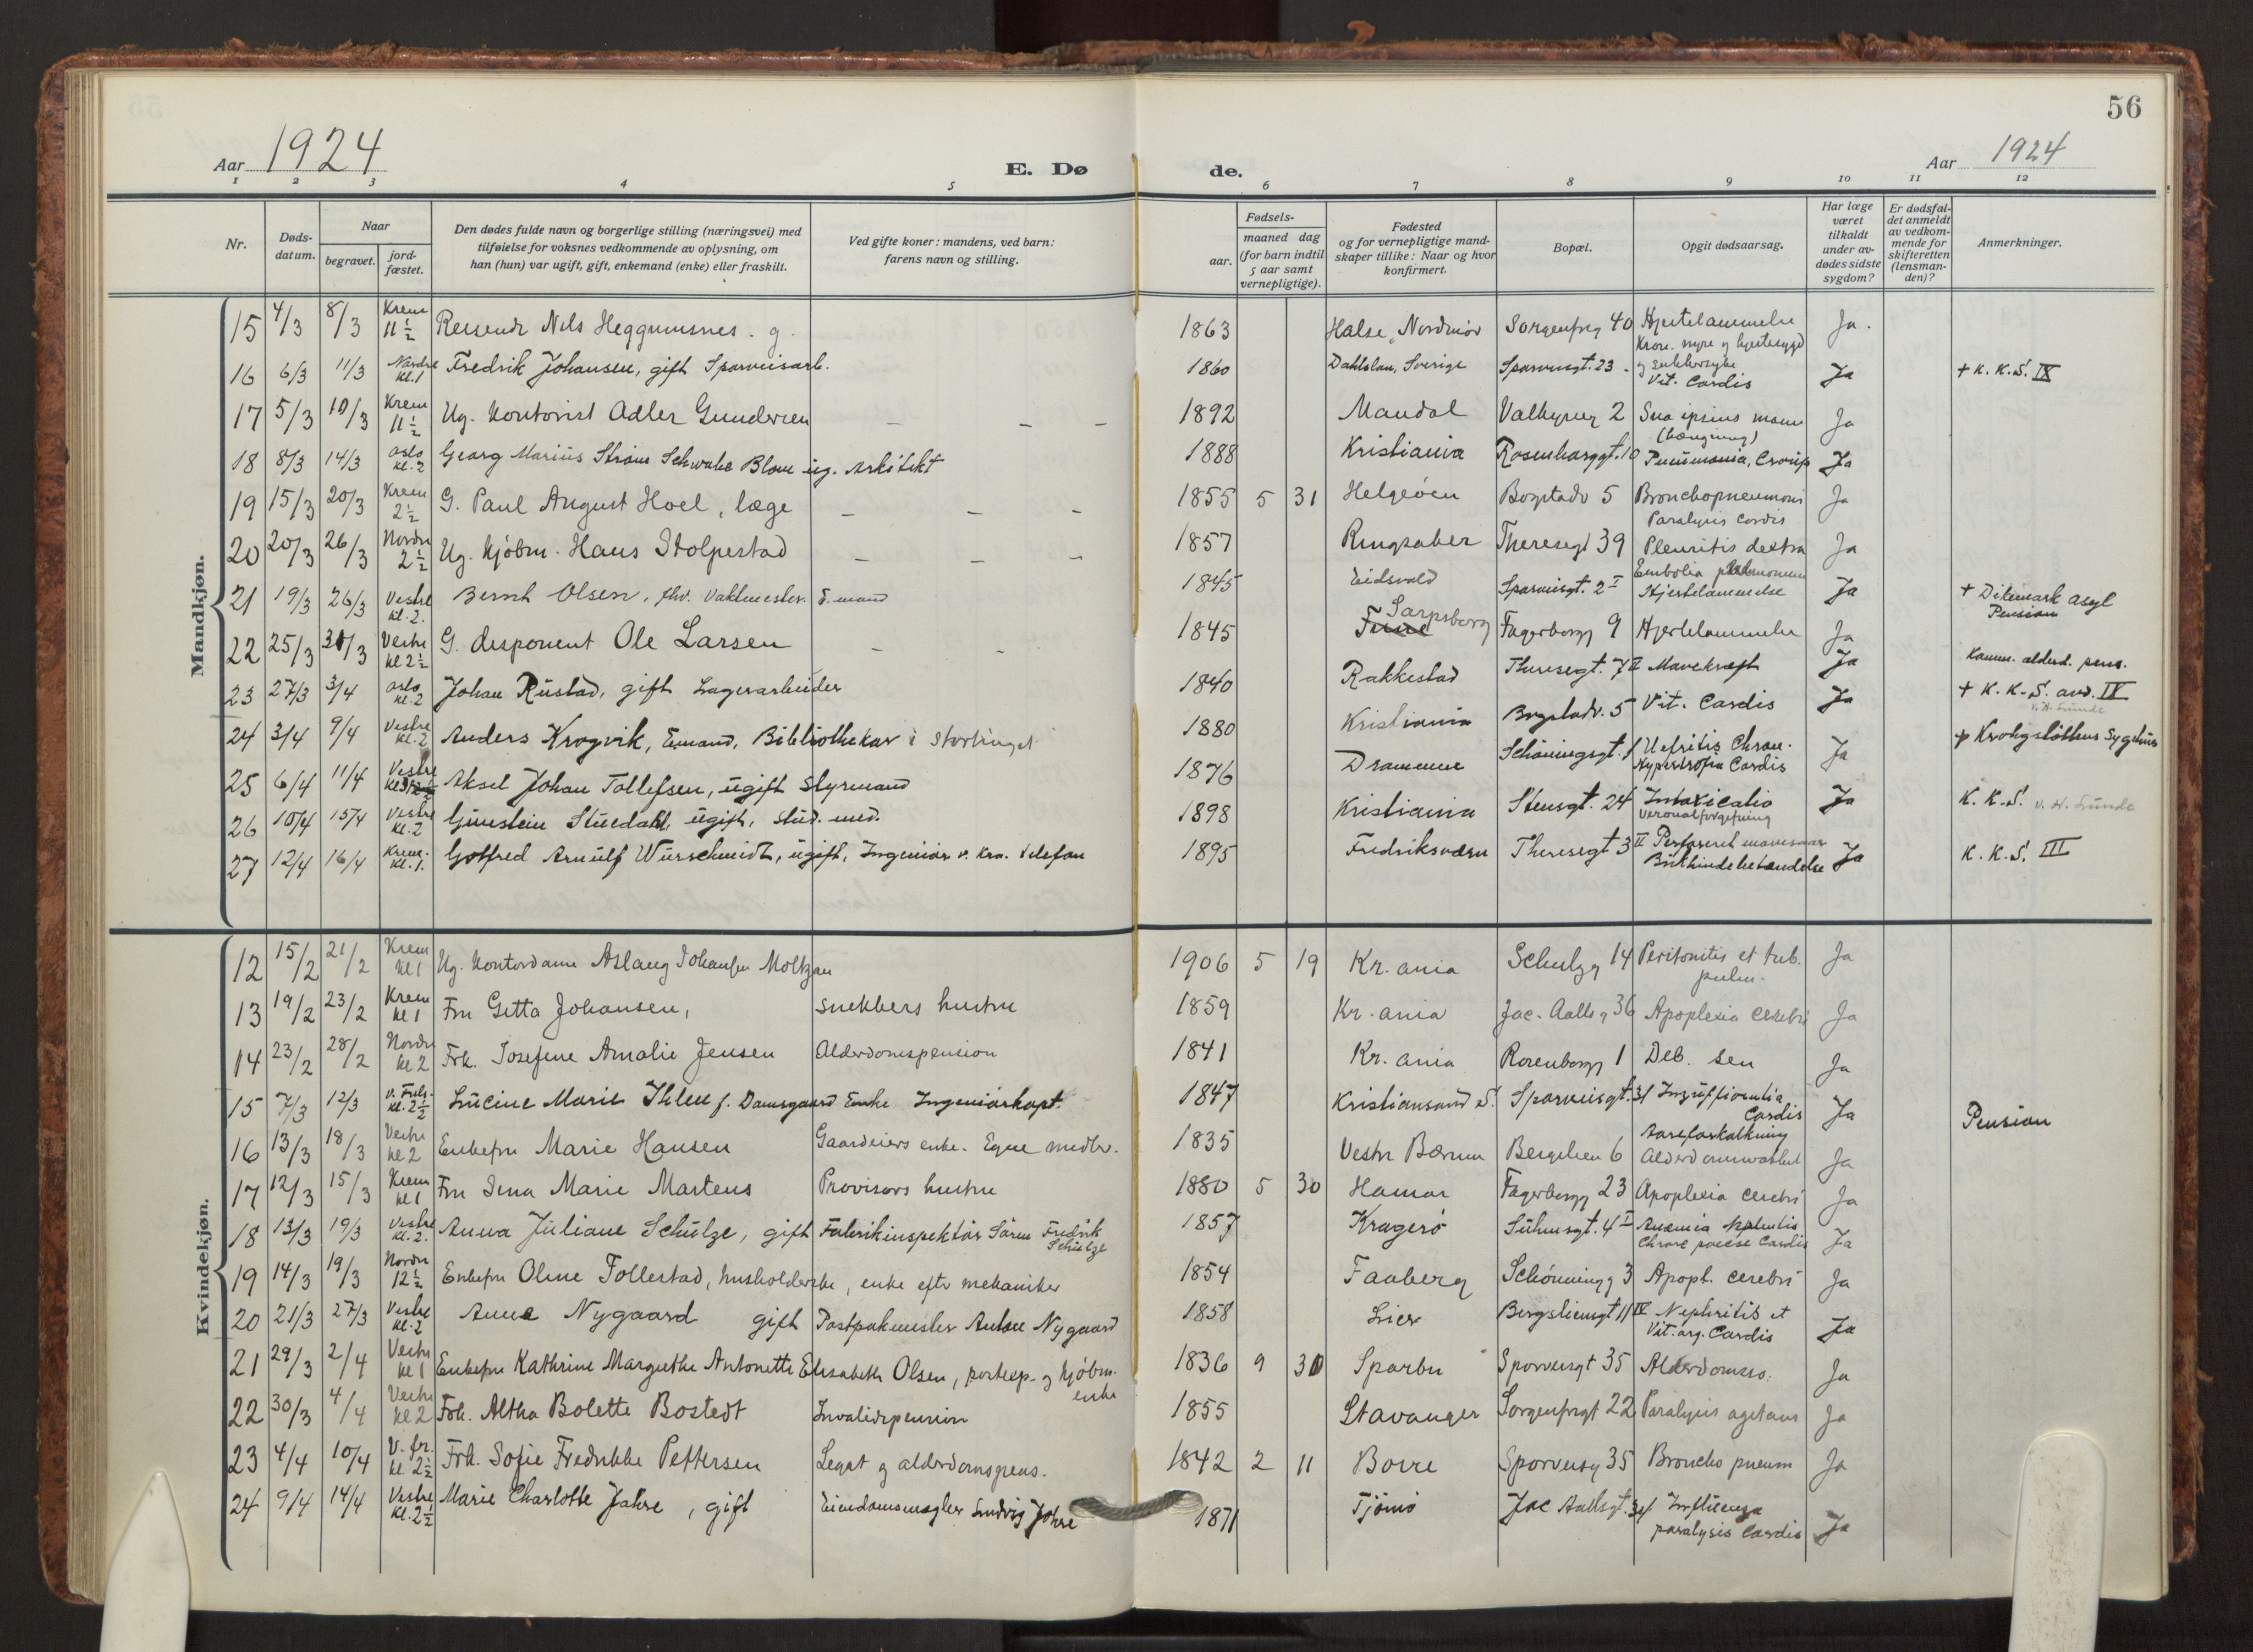 56
Aar 1924
E. Dø de.
Aar 1924
1 2 3 4 5 6 7 8 9 10 11 12
Nr.
Døds-datum.
Naar
begravet.
jord-fæstet.
Den dødes fulde navn og borgerlige stilling (næringsvei) med
tilføielse for voksnes vedkommende av oplysning, om
han (hun) var ugift, gift, enkemand (enke) eller fraskilt.
Ved gifte koner: mandens, ved barn:
farens navn og stilling.
Fødsels-
aar.
maaned dag
(for barn indtil
5 aar samt
vernepligtige).
Fødested
og for vernepligtige mand-
skaper tillike: Naar og hvor
konfirmert.
Bopæl.
Opgit dødsaarsag.
Har læge
været
tilkaldt
under av-
dødes sidste
sygdom?
Er dødsfal-
det anmeldt
av vedkom-
mende for
skifteretten
(lensman-
den)?
Anmerkninger.
Mandkjøn.
15 4/3 8/3 Krem 11½ Reisende Nils Heggumsnes. g. 1863 Halse, Nordmør Sorgenfrig 40 Hjertelammelse Ja.
16 6/3 11/3 Nordre kl. 1 Fredrik Johansen, gift Sporveisarb. 1860 Dahlslan, Sverige Sporveisgt. 23 Kron. nyre og hjertesygd og sukkersyke Vit. Cardis Ja + K. K. S. IX
17 5/3 10/3 Krem 11½ Ug. Kontorist Adler Gundersen 1892 Mandal Valkyrieg 2 Sua ipsius manu (hængning) Ja
18 8/3 14/3 Oslo kl. 2 Georg Marius Strøm Schwabe Blom ug. Arkitekt 1888 Kristiania Rosenborggt. 10 Pneumonia, Croup Ja
19 15/3 20/3 Krem 2½ G. Paul August Hoel, læge 1855 5 31 Helgøen Bogstadv 5 Bronchopneumoni Paralysis Cordis Ja
20 20/3 26/3 Nordre 2½ Ug. Kjøbm. Hans Stolpestad 1857 Ringsaker Theresegt 39 Pleuritis dextra Ja
21 19/3 26/3 Vestre kl. 2. Bernt Olsen, fhv. Vaktmester. E. mand 1845 Eidsvold Sporveisgt. 2 I Embolia pulmonum Hjertelammelse Ja + Dikemark asyl Pension
22 25/3 31/3 Vestre kl 2½ G. disponent Ole Larsen 1845 Sarpsborg Fagerborgg 9 Hjertelammelse Ja
23 27/3 3/4 Oslo kl. 2 Johan Rustad, gift Lagerarbeider 1840 Rakkestad Theresegt. 7 II Mavekræft Ja Komm. alderd. pens.
24 3/4 9/4 Vestre kl. 2 Anders Krogvik, Emand, Bibliothekar i Stortinget 1880 Kristiania Bogstadv. 5 Vit. Cardis Ja + K. K. S. avd. IV
25 6/4 11/4 Vestre Aksel Johan Tollefsen, ugift styrmand 1876 Drammen Schøningsgt. 1 Nefritis Chron. Hypertrofia Cordis Ja + Krohgstøttens Sygehus
26 10/4 15/4 Vestre kl. 2 Gunstein Sturdahl, ugift, stud. med. 1898 Kristiania Stensgt. 24 Intoxicatio Veronalforgiftning Ja K. K. S.
27 12/4 16/4 Krem. kl. 1. Gotfred Arnulf Würschmidt, ugift, Ingeniør v. Kra. telefon 1895 Fredriksværn Theresegt 3 II Perforeret mavesaar Bukhindebetændelse Ja K. K. S. III
Kvindekjøn.
12 15/2 21/2 Krem kl 1 Ug. Kontordame Aslaug Johansen Moltzau 1906 5 19 Kr. ania Schulzg 14 Peritonitis et tub. pulm. Ja
13 19/2 23/2 Krem kl 1 Fru Getta Johansen, snekkers hustru 1859 Kr. ania Jac. Aalls g 36 Apoplexia cerebri Ja
14 23/2 28/2 Nordre kl 2 Frk. Josefine Amalie Jensen Alderdomspension 1841 Kr. ania Rosenborgg 1 Deb. sen Ja
15 7/3 12/3 kl. 2½ Lucine Marie Ihlen f. Damsgaard Enke Ingeniørkapt. 1847 Kristiansand S. Sporveisgt. 31 Insufficientia Cardis Ja Pension
16 13/3 18/3 Vestre kl 2 Enkefru Marie Hansen Gaardeiers enke. Egne midler. 1835 Vestre Bærum Bergslien 6 Aareforkalkning Alderdomsvakhet Ja
17 12/3 15/3 Krem kl 1 Fru Sina Marie Martens Provisors hustru 1880 5 30 Hamar Fagerborgg 23 Apoplexia cerebri Ja
18 13/3 19/3 Vestre kl. 2. Anna Juliane Schulze, gift Fabrikinspektør Søren Fredrik Schulze 1857 Kragerø Suhmsgt. 4 I Anæmia Chron. Cardis Ja
19 14/3 19/3 Nordre 12½ Enkefru Oline Follestad, husholderske, enke efter mekaniker 1854 Faaberg Schønningg 3 Apopl. cerebri Ja
20 21/3 27/3 Vestre kl. 2 Anna Nygaard gift Postpakmester Anton Nygaard 1858 Lier Bergsliensgt 11 IV Nephritis et Vit. org. Cardis Ja
21 29/3 2/4 Vestre kl 1 Enkefru Kathrine Margrethe Antonette Elisabeth Olsen, postexp. og kjøbm. enke 1836 9 30 Sparbu Sporveisgt 35 Alderdomss. Ja
22 30/3 4/4 Vestre kl 2 Frk. Altha Bolette Bostedt Invalidepension 1855 Stavanger Sorgenfrigt 22 Paralysis agitans Ja
23 4/4 10/4 V. fr. kl 2½ Frk. Sofie Fredrikke Pettersen Legat og alderdomspens. 1842 2 11 Borre Sporveisg 35 Broncho pneum Ja
24 9/4 14/4 Vestre kl. 2½ Marie Charlotte Jahre, gift Eiendomsmægler Ludvig Jahre 1871 Tjømø Jac Aallsgt. 34 Influenza paralysis Cardis Ja